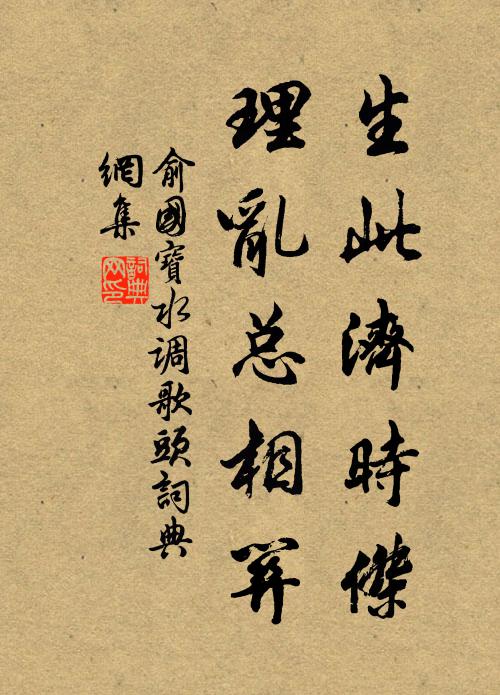 生此濟時傑
理亂总相關
俞國寶水调歌頭詞典
網集
詞典
网印